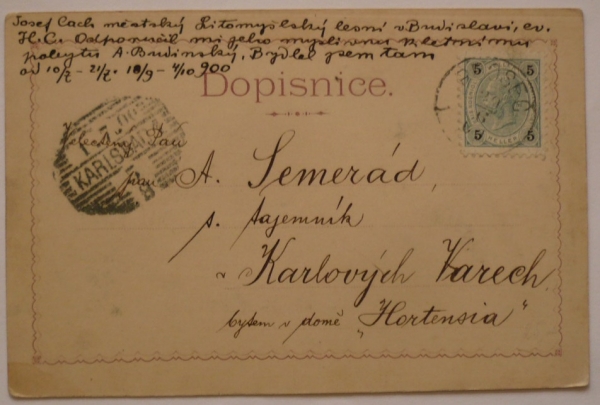 Josef Cach městský Litomyšlský lesní v Budislavi, ev.
H. C. Odporučil mi jeho myslivnu k letnímu
pobytu A. Budínský, Bydlel jsem tam
od 10/7 - 21/7. 18/9 - 4/10 900
Dopisnice.
5 5
5 5
7.00
KARLSBAD
Pan
pan A. Semerád,
s. tajemník
v Karlových Varech
bytem v domě „Hortensia“